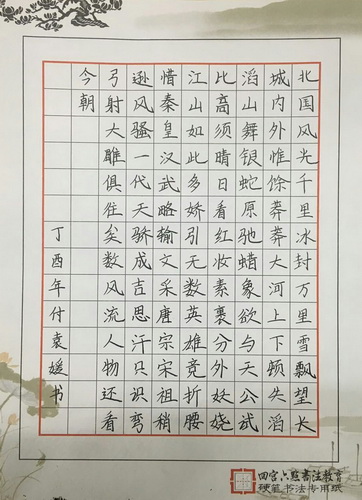 北国风光千里冰封万里雪飘望长
城内外惟馀莽莽大河上下顿失滔
滔山舞银蛇原驰蜡象欲与天公试
比高须晴日看红妆素裹分外妖娆
江山如此多娇引无数英雄竞折腰
惜秦皇汉武略输文采唐宗宋祖稍
逊风骚一代天骄成吉思汗只识弯
弓射大雕俱往矣数风流人物还看
今朝
丁酉年付袁媛书
四宫六點书法教育
硬笔书法专用纸